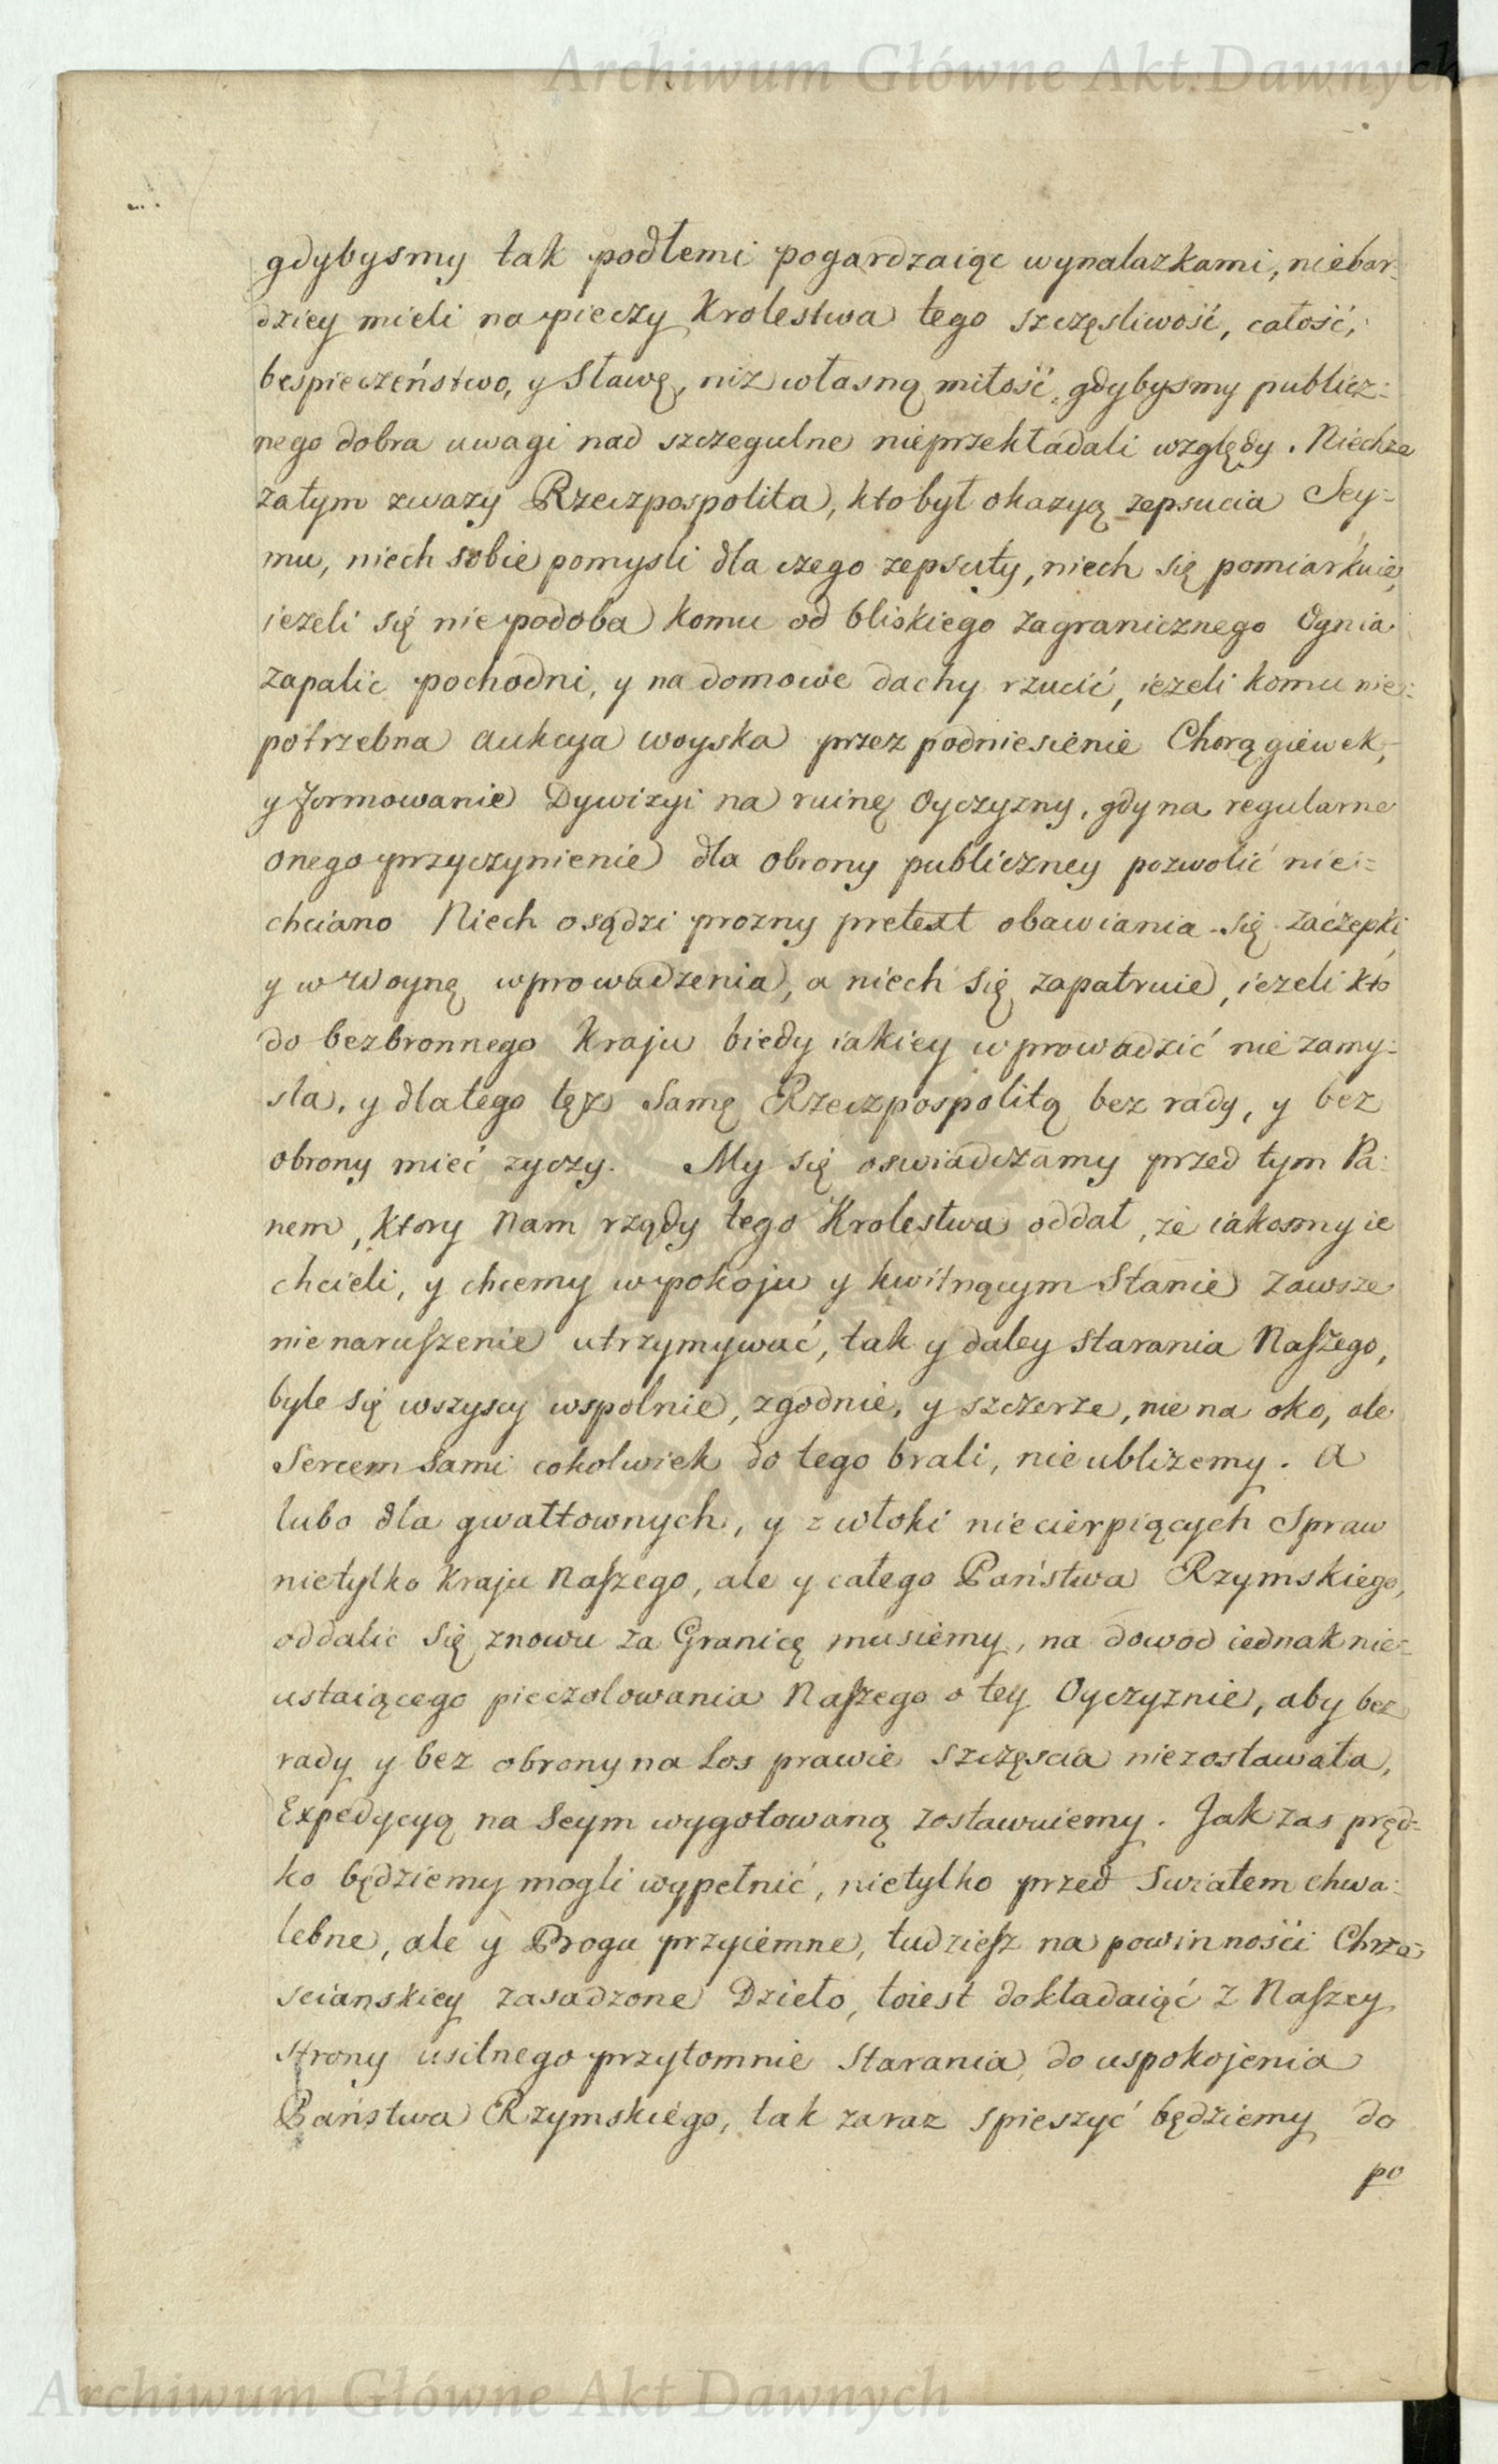 Archiwum Główne Akt Dawnych
gdybysmy tak podłemi pogardzaiąc wynalazkami, niebar-
dziey mieli na pieczy Krolestwa tego szczęsliwość, całość,
bespieczeństwo, y Sławę, niz własną miłość, gdybysmy publicz:
nego dobra uwagi nad szczegulne nieprzekładali względy. Niechze
zatym zwazy Rzeczpospolita, kto był okazyą zepsucia Sey=
mu, niech sobie pomysli dla czego zepsuty, niech się pomiarkuie,
iezeli się nie podoba komu od bliskiego zagranicznego Ognia
zapalic pochodni, y na domowe dachy rzucić, iezeli komu nie:
potrzebna aukcya woyska przez podniesienie Chorągiewek,
y formowanie Dywizyi na ruinę Oyczyzny, gdy na regularne
onego przyczynienie dla obrony publiczney pozwolić nie=
chciano Niech osądzi prozny pretext obawiania się zaczepki
y w Woynę wprowadzenia, a niech się zapatruie, iezeli kto
do bezbronnego Kraju biedy iakiey wprowadzić nie zamy:
sla, y dlatego tęz Samę Rzeczpospolitą bez rady, y bez
obrony mieć zyczy. My się oswiadczamy przed tym Pa:
nem, Ktory Nam rządy tego Krolestwa oddał, ze iakosmy ie
chcieli, y chcemy w pokoju y kwitnącym Stanie zawsze
nienaruszenie utrzymywać, tak y daley starania Naszego,
byle się wszyscy wspolnie, zgodnie, y szczerze, nie na oko, ale
Sercem Sami cokolwiek do tego brali, nie ublizemy. A
lubo dla gwałtownych, y zwłoki niecierpiących Spraw
nietylko Kraju Naszego, ale y całego Państwa Rzymskiego,
oddalic się znowu za Granicę musiemy, na dowod iednak nie=
ustaiącego pieczolowania Naszego o tey Oyczyznie, aby bez
rady y bez obrony na Los prawie szczęscia niezostawała,
Expedycyą na Seym wygotowaną zostawuiemy. Jak zas pręd=
ko będziemy mogli wypełnić, nietylko przed Swiatem chwa:
lebne, ale y Progu przyiemne, tudziesz na powinnośći Chrze=
scianskiey zasadzone Dzieło, toiest dokładaiąć z Naszey
strony usilnego przytomnie starania do uspokojenia
Państwa Rzymskiego, tak zaraz spieszyć będziemy do
po
Archiwum Główne Akt Dawnych